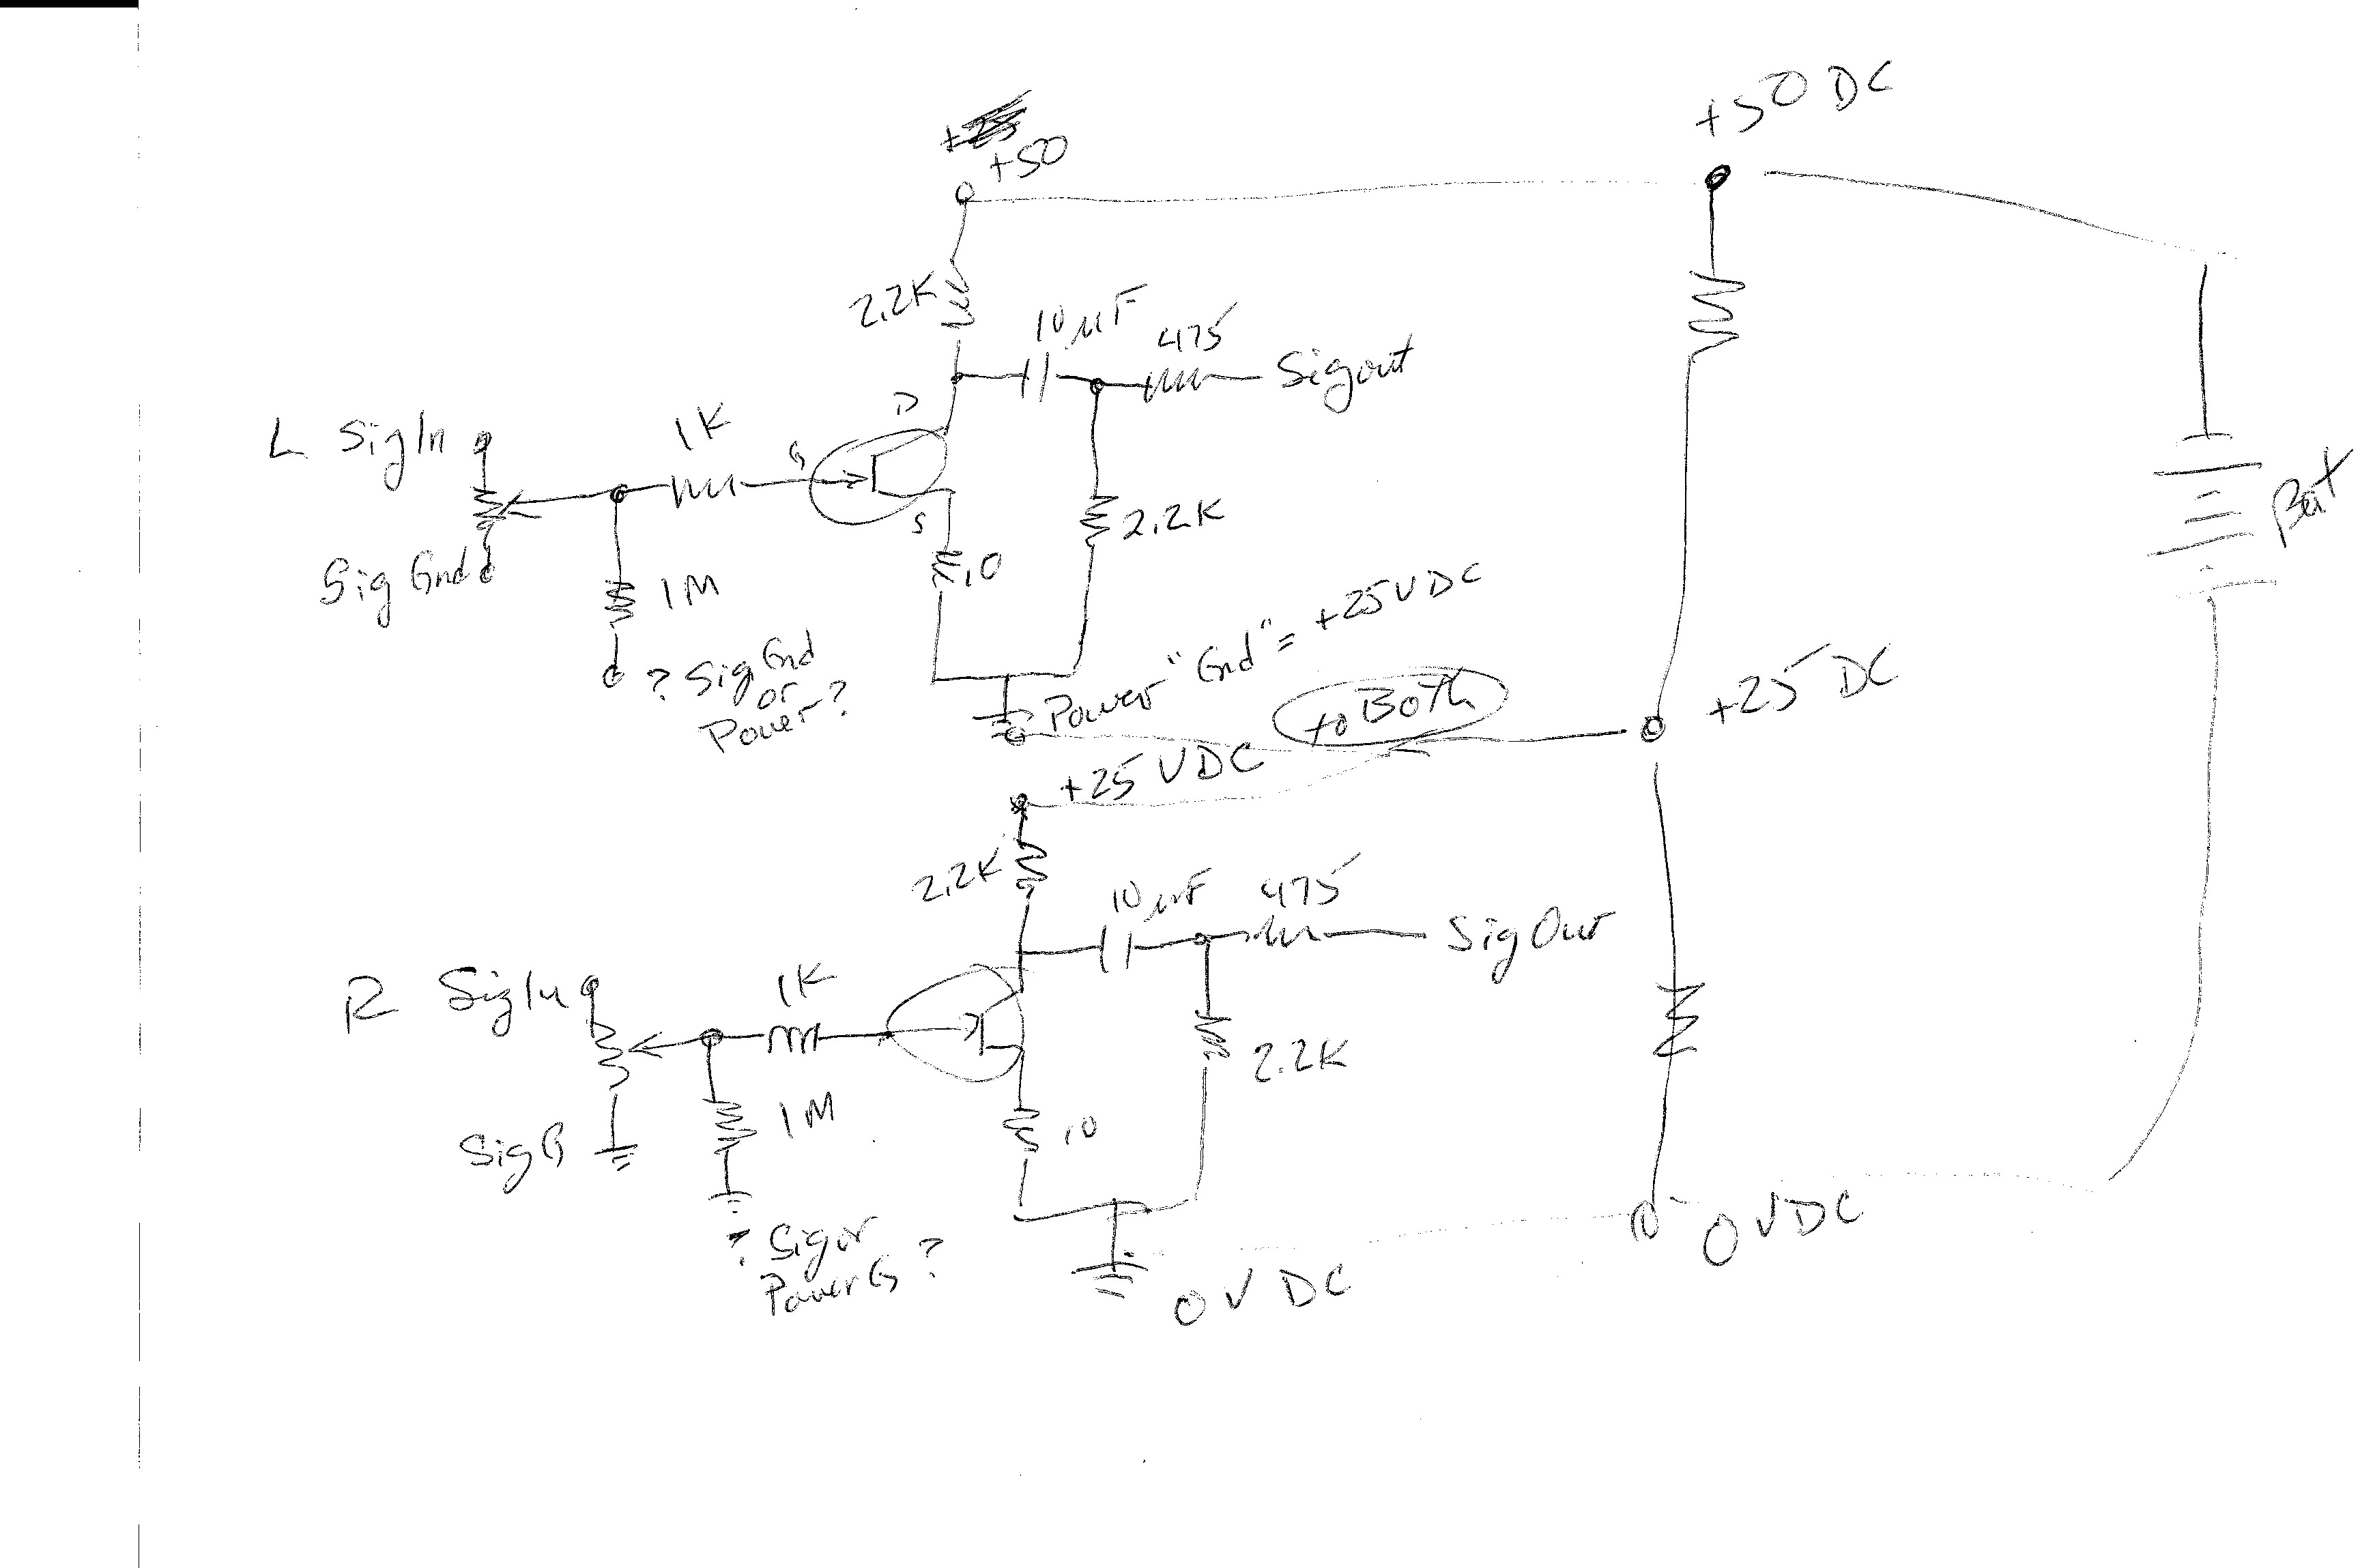 +25
+50
+50 DC
2.2K
10 µF
475
Sigout
D
L SigIn
1K
G
S
Bat
2.2K
10
Sig Gnd
1M
Power "Gnd" = +25VDC
? Sig Gnd
or
Power ?
to Both
+25 DC
+25 VDC
2.2K
10 µF
475
Sig Out
R SigIn
1K
2.2K
1M
10
Sig G
? Sig or
Power G ?
0 VDC
0 V DC